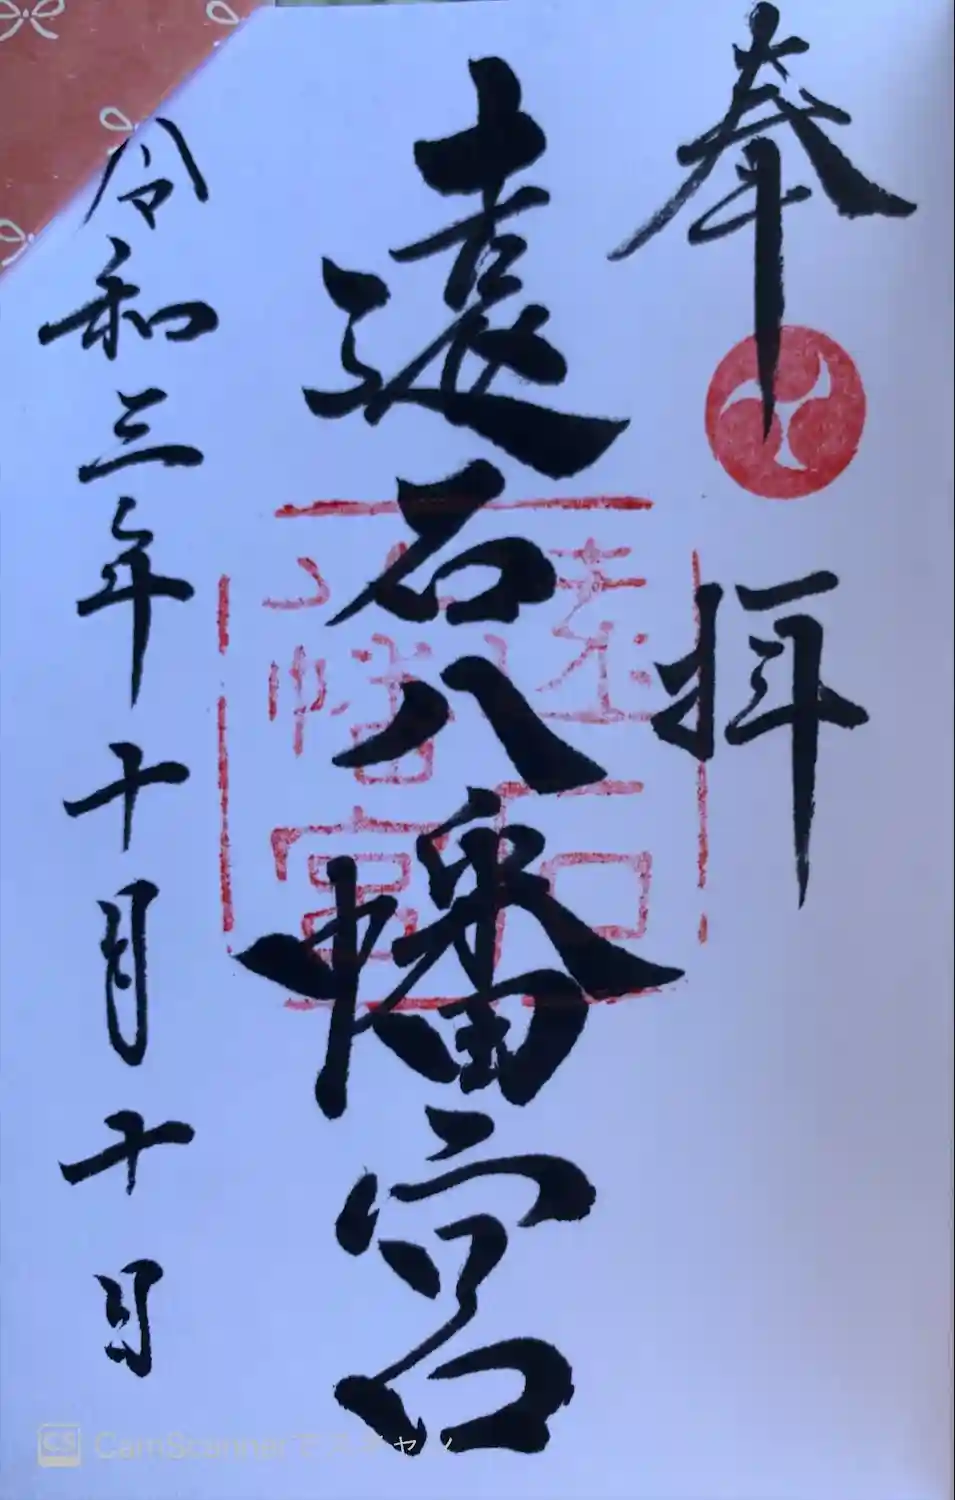 奉拝
遠石八幡宮
令和三年十月十日
遠石
八幡宮
CS CamScannerでスキャン